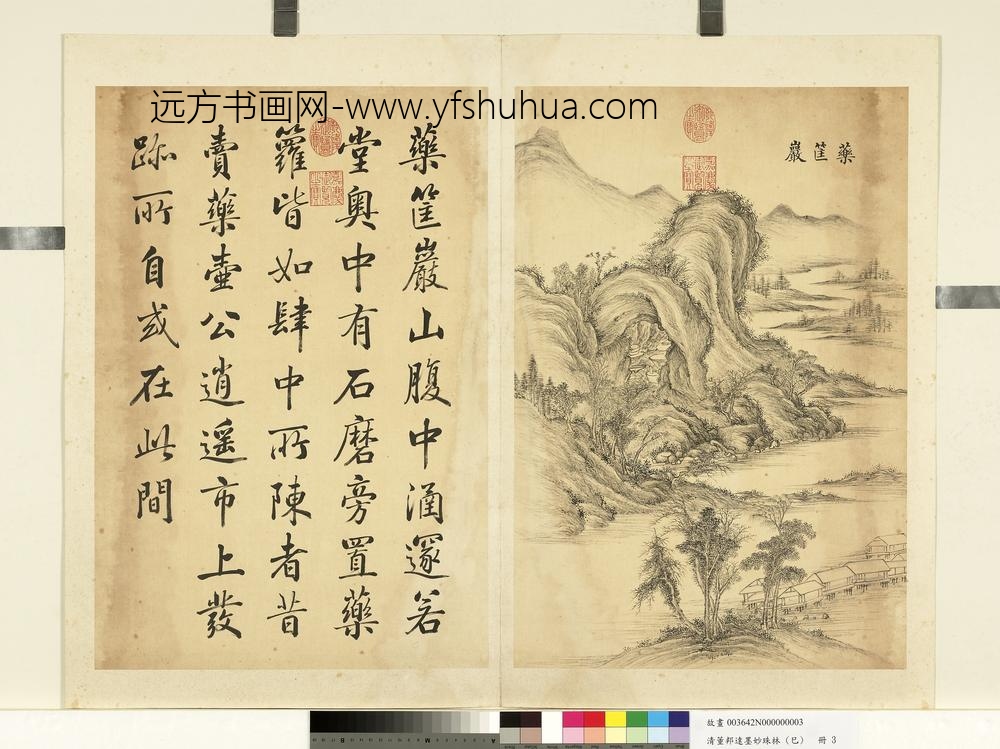 远方书画网-www.yfshuhua.com
藥筐巖
藥筐巖山腹中涌邃若
堂奧中有石磨旁置藥
籮皆如肆中所陳者昔
賣藥壺公逍遥市上發
跡所自或在此間
故畫 003642N000000003
清董邦達墨妙珠林（巳） 冊 3